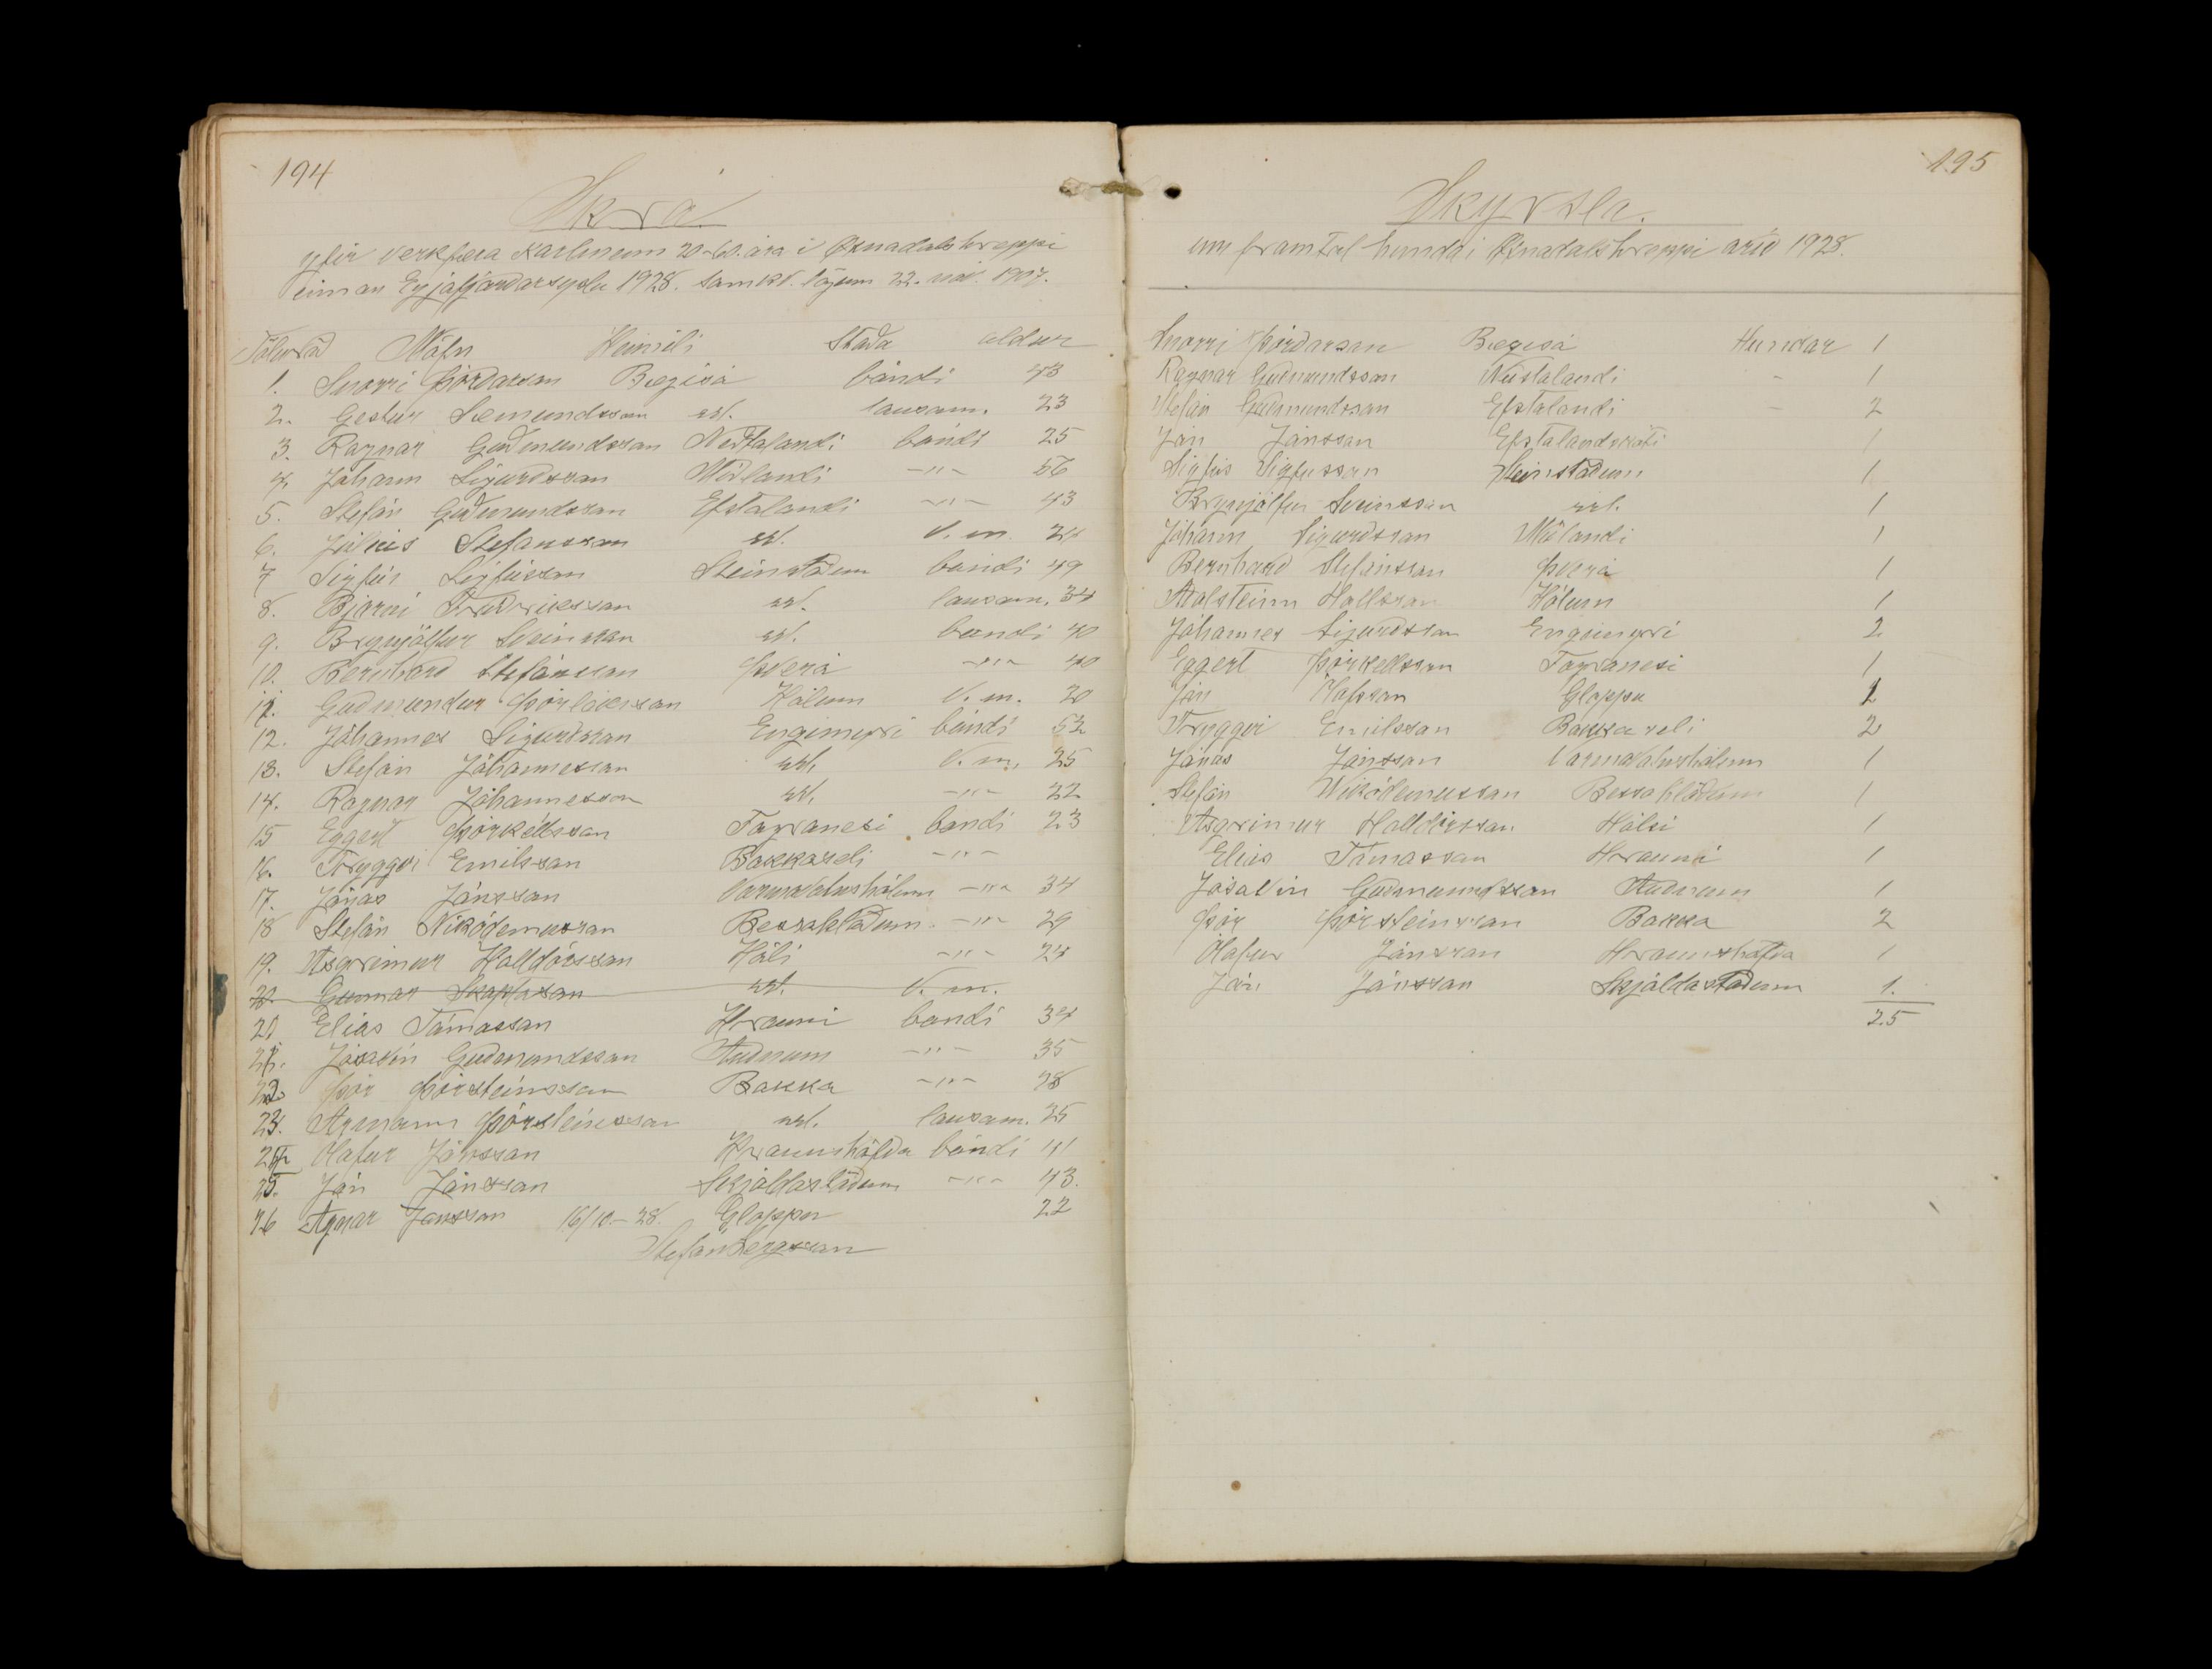 194
Skrá
yfir verkfæra karlmenn 20-60. ára i Øxnadalshreppi
innan Eyjafjardarsyslu 1928. samkv. lögum 22. nóv. 1907.
Töluröd Nöfn Heimili Stada aldur
1. Snorri Þórdarson Bægisá bóndi 43
2. Gestur Sæmundsson sst. lausam. 23
3. Ragnar Gudmundsson Nedstalandi bóndi 25
4. Jóhann Sigurdsson Midlandi -"- 56
5. Stefán Gudmundsson Efstalandi -"- 43
6. Júlíus Stefansson sst. V. m. 24
7 Sigfús Sigfússon Steinstödum bóndi 49
8. Bjarni Fridriksson sst. lausam. 34
9. Brynjólfur Sveinsson sst. bondi 40
10. Bernhard Stefánsson Þverá -"- 40
11. Gudmundur Þorleifsson Hólum V. m. 20
12. Jóhannes Sigurdsson Engimyri bóndi 52
13. Stefán Jóhannesson sst. V. m. 25
14. Ragnar Jóhannesson sst. -"- 22
15 Eggert Þórkelsson Fagranesi bondi 23
16. Tryggvi Emilsson Bakkaseli -"-
17. Jónas Jónsson Varmavatnshólum -"- 34
18 Stefán Nikódemusson Bessahlödum -"- 29
19. Asgrimur Halldórsson Hóli -"- 24
20 Gunnar Skaptason sst. V. m.
20 Elias Tómasson Hrauni bondi 34
21. Jósavin Gudmundsson Audnum -"- 35
22. Þór Þórsteinsson Bakka -"- 48
23. Armann Þórsteinsson sst. lausam. 25
24 Olafur Jónsson Hraunshöfda bóndi 41
25. Jón Jónsson Skjaldastödum -"- 43.
26 Agnar Jónsson 16/10-28. Gloppu 22
Stefán Bergsson
195
Skyrsla.
um framtal hunda i Øxnadalshreppi arid 1928.
Snorri Þórdarson Bægisá Hundar 1
Ragnar Gudmundsson Nedstalandi - 1
Stefán Gudmundsson Efstalandi - 2
Jón Jónsson Efstalandskoti 1
Sigfús Sigfússon Steinstadum 1
Brynjólfur Sveinsson sst. 1
Jóhann Sigurdsson Midlandi 1
Bernhard Stefánsson Þverá 1
Adalsteinn Hallsson Hólum 1
Jóhannes Sigurdsson Engimyri 2
Eggert Þórkellsson Fagranesi 1
Jón Gloppu 1
Tryggvi Emilsson Bakkaseli 2
Jónas Jónsson Varmavatnshólum 1
Stefán Nikódemusson Bessahlödum 1
Asgrimur Halldórsson Hólsi 1
Elias Tómasson Hrauni 1
Jósavin Gudmundsson Audnum 1
Þór Þórsteinsson Bakka 2
Olafur Jónsson Hraunshöfda 1
Jón Jónsson Skjáldastadum 1.
25